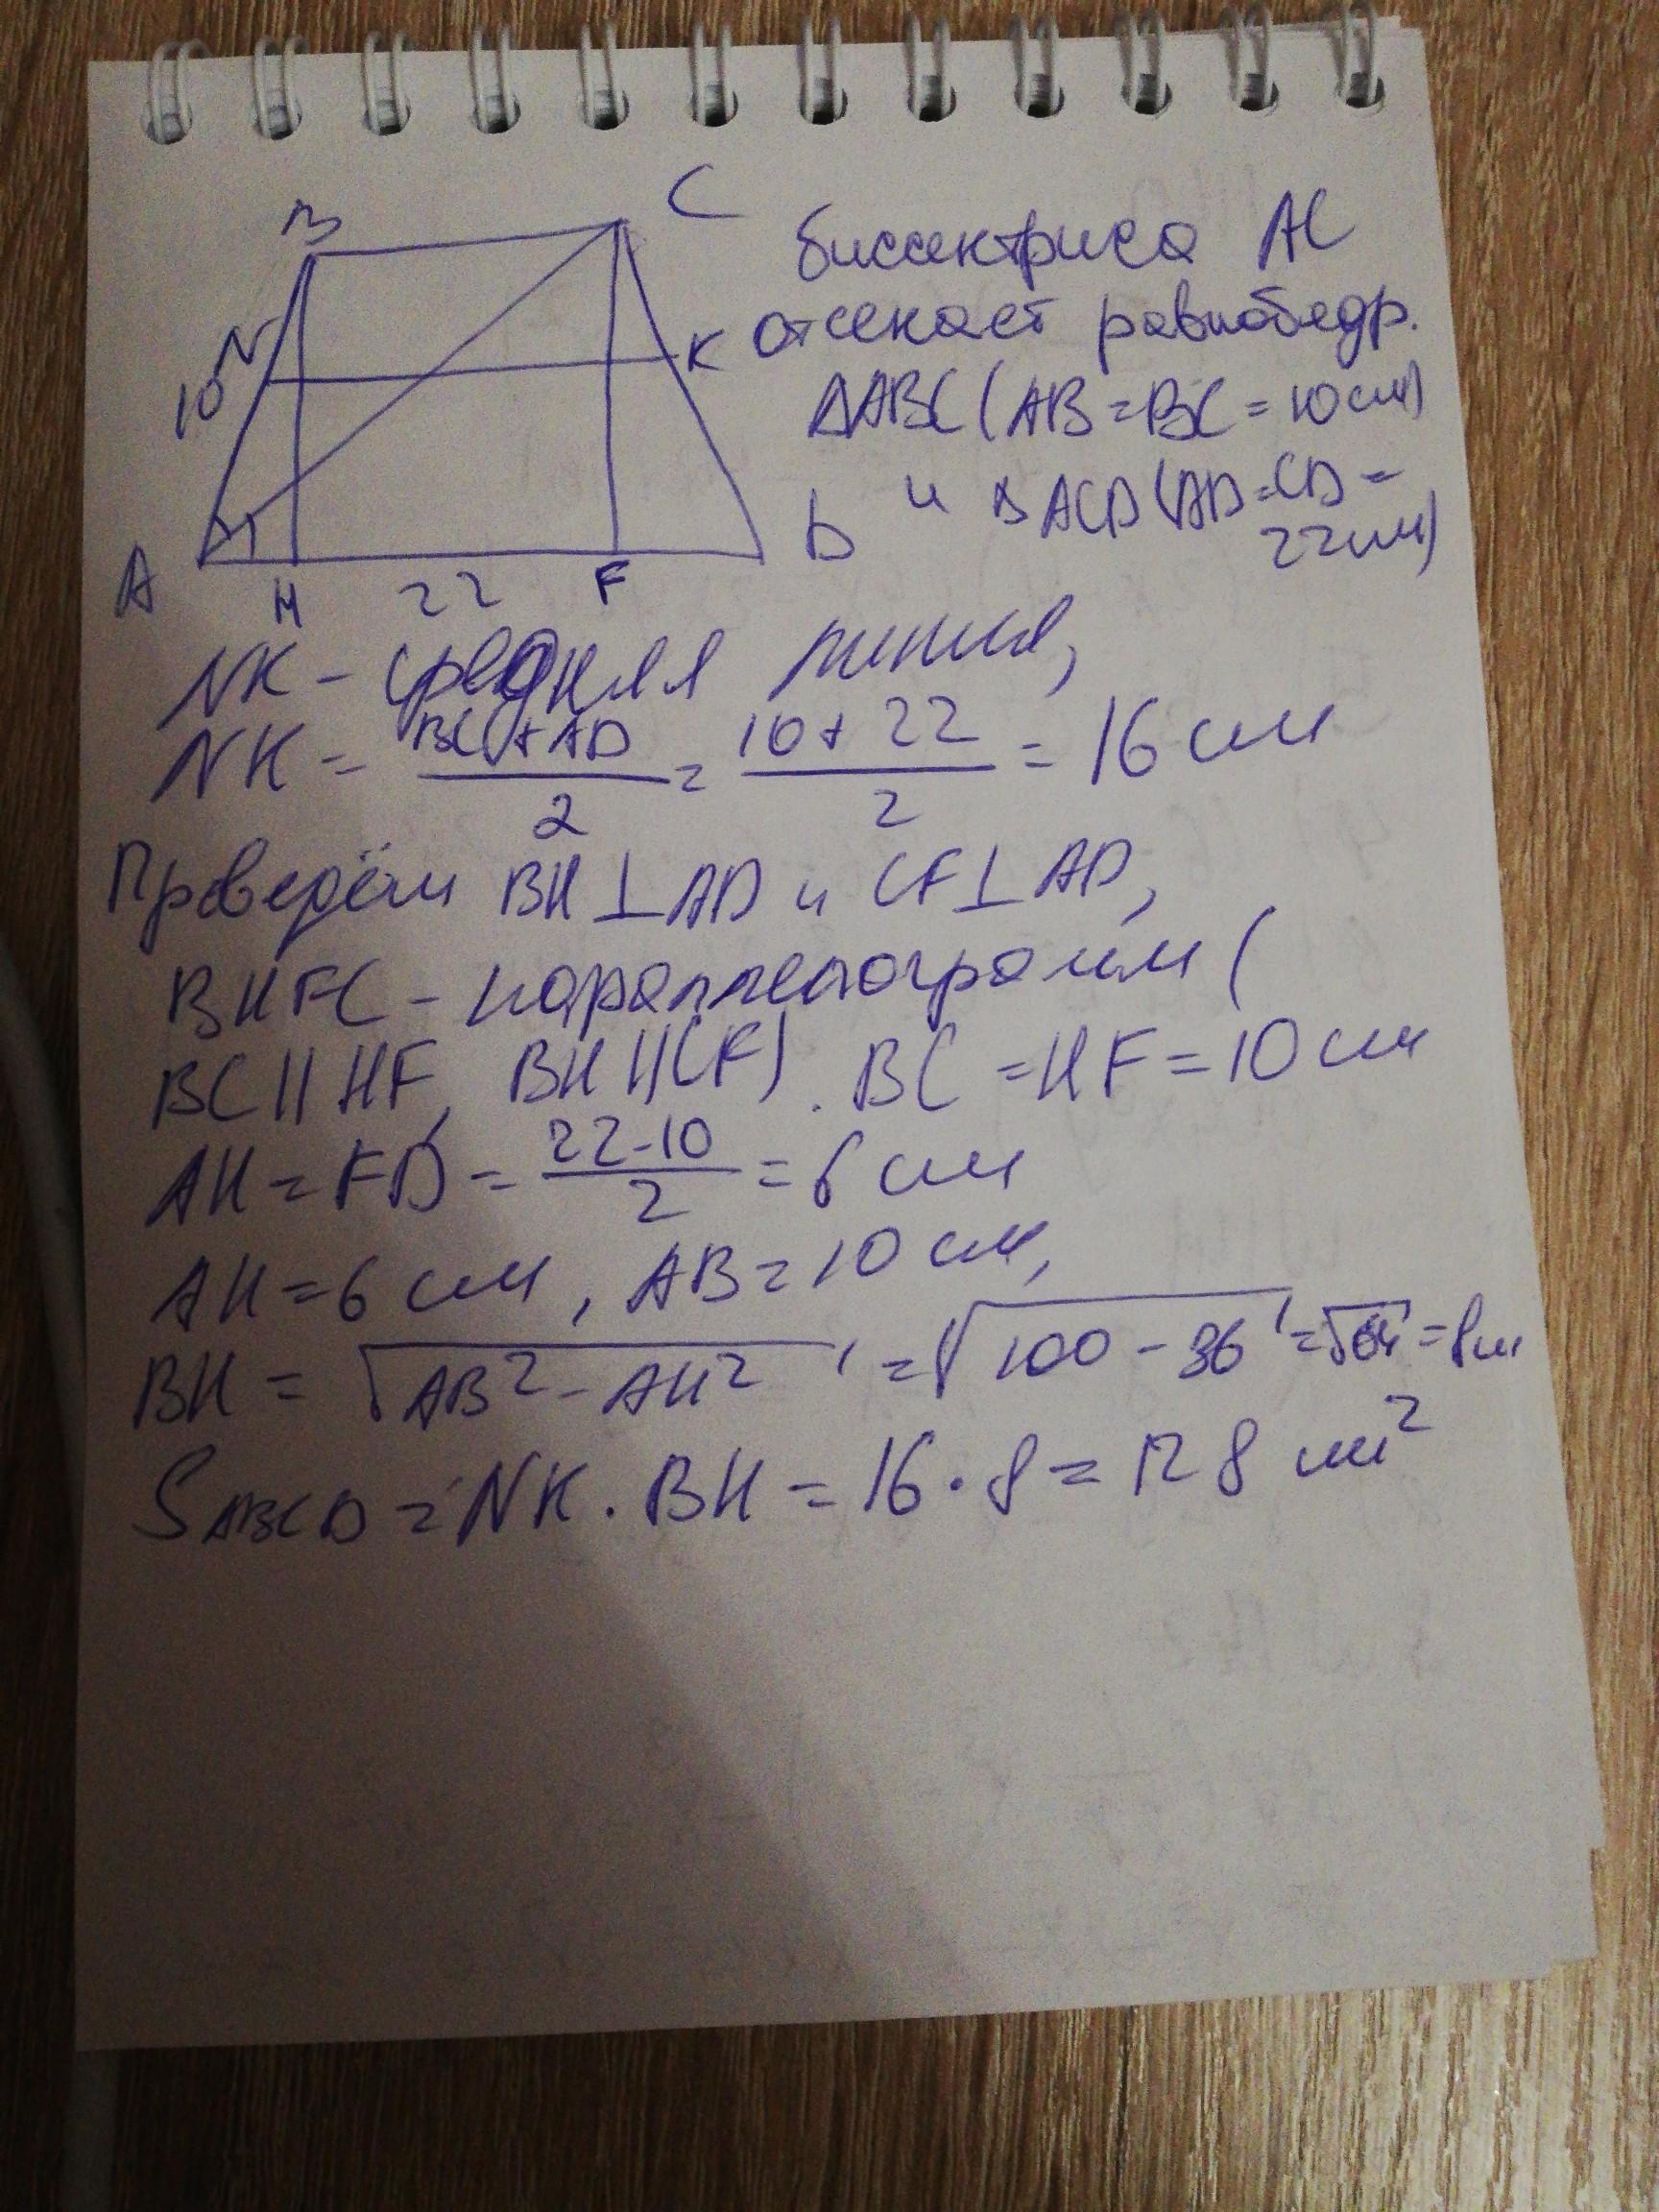 B C
N
10
K
A H 22 F D
биссектриса AC
отсекает равнобедр.
ΔABC (AB=BC=10см)
и ΔACD (AD=CD=
22см)
NK - средняя линия,
NK = (BC+AD)/2 = (10+22)/2 = 16 см
Проведём BH⊥AD и CF⊥AD,
BHFC - параллелограмм (
BC||HF, BH||CF). BC=HF=10 см
AH=FD=(22-10)/2=6 см
AH=6 см, AB=10 см,
BH=√(AB²-AH²)=√(100-36)=√64=8см
S ABCD = NK·BH=16·8=128 см²